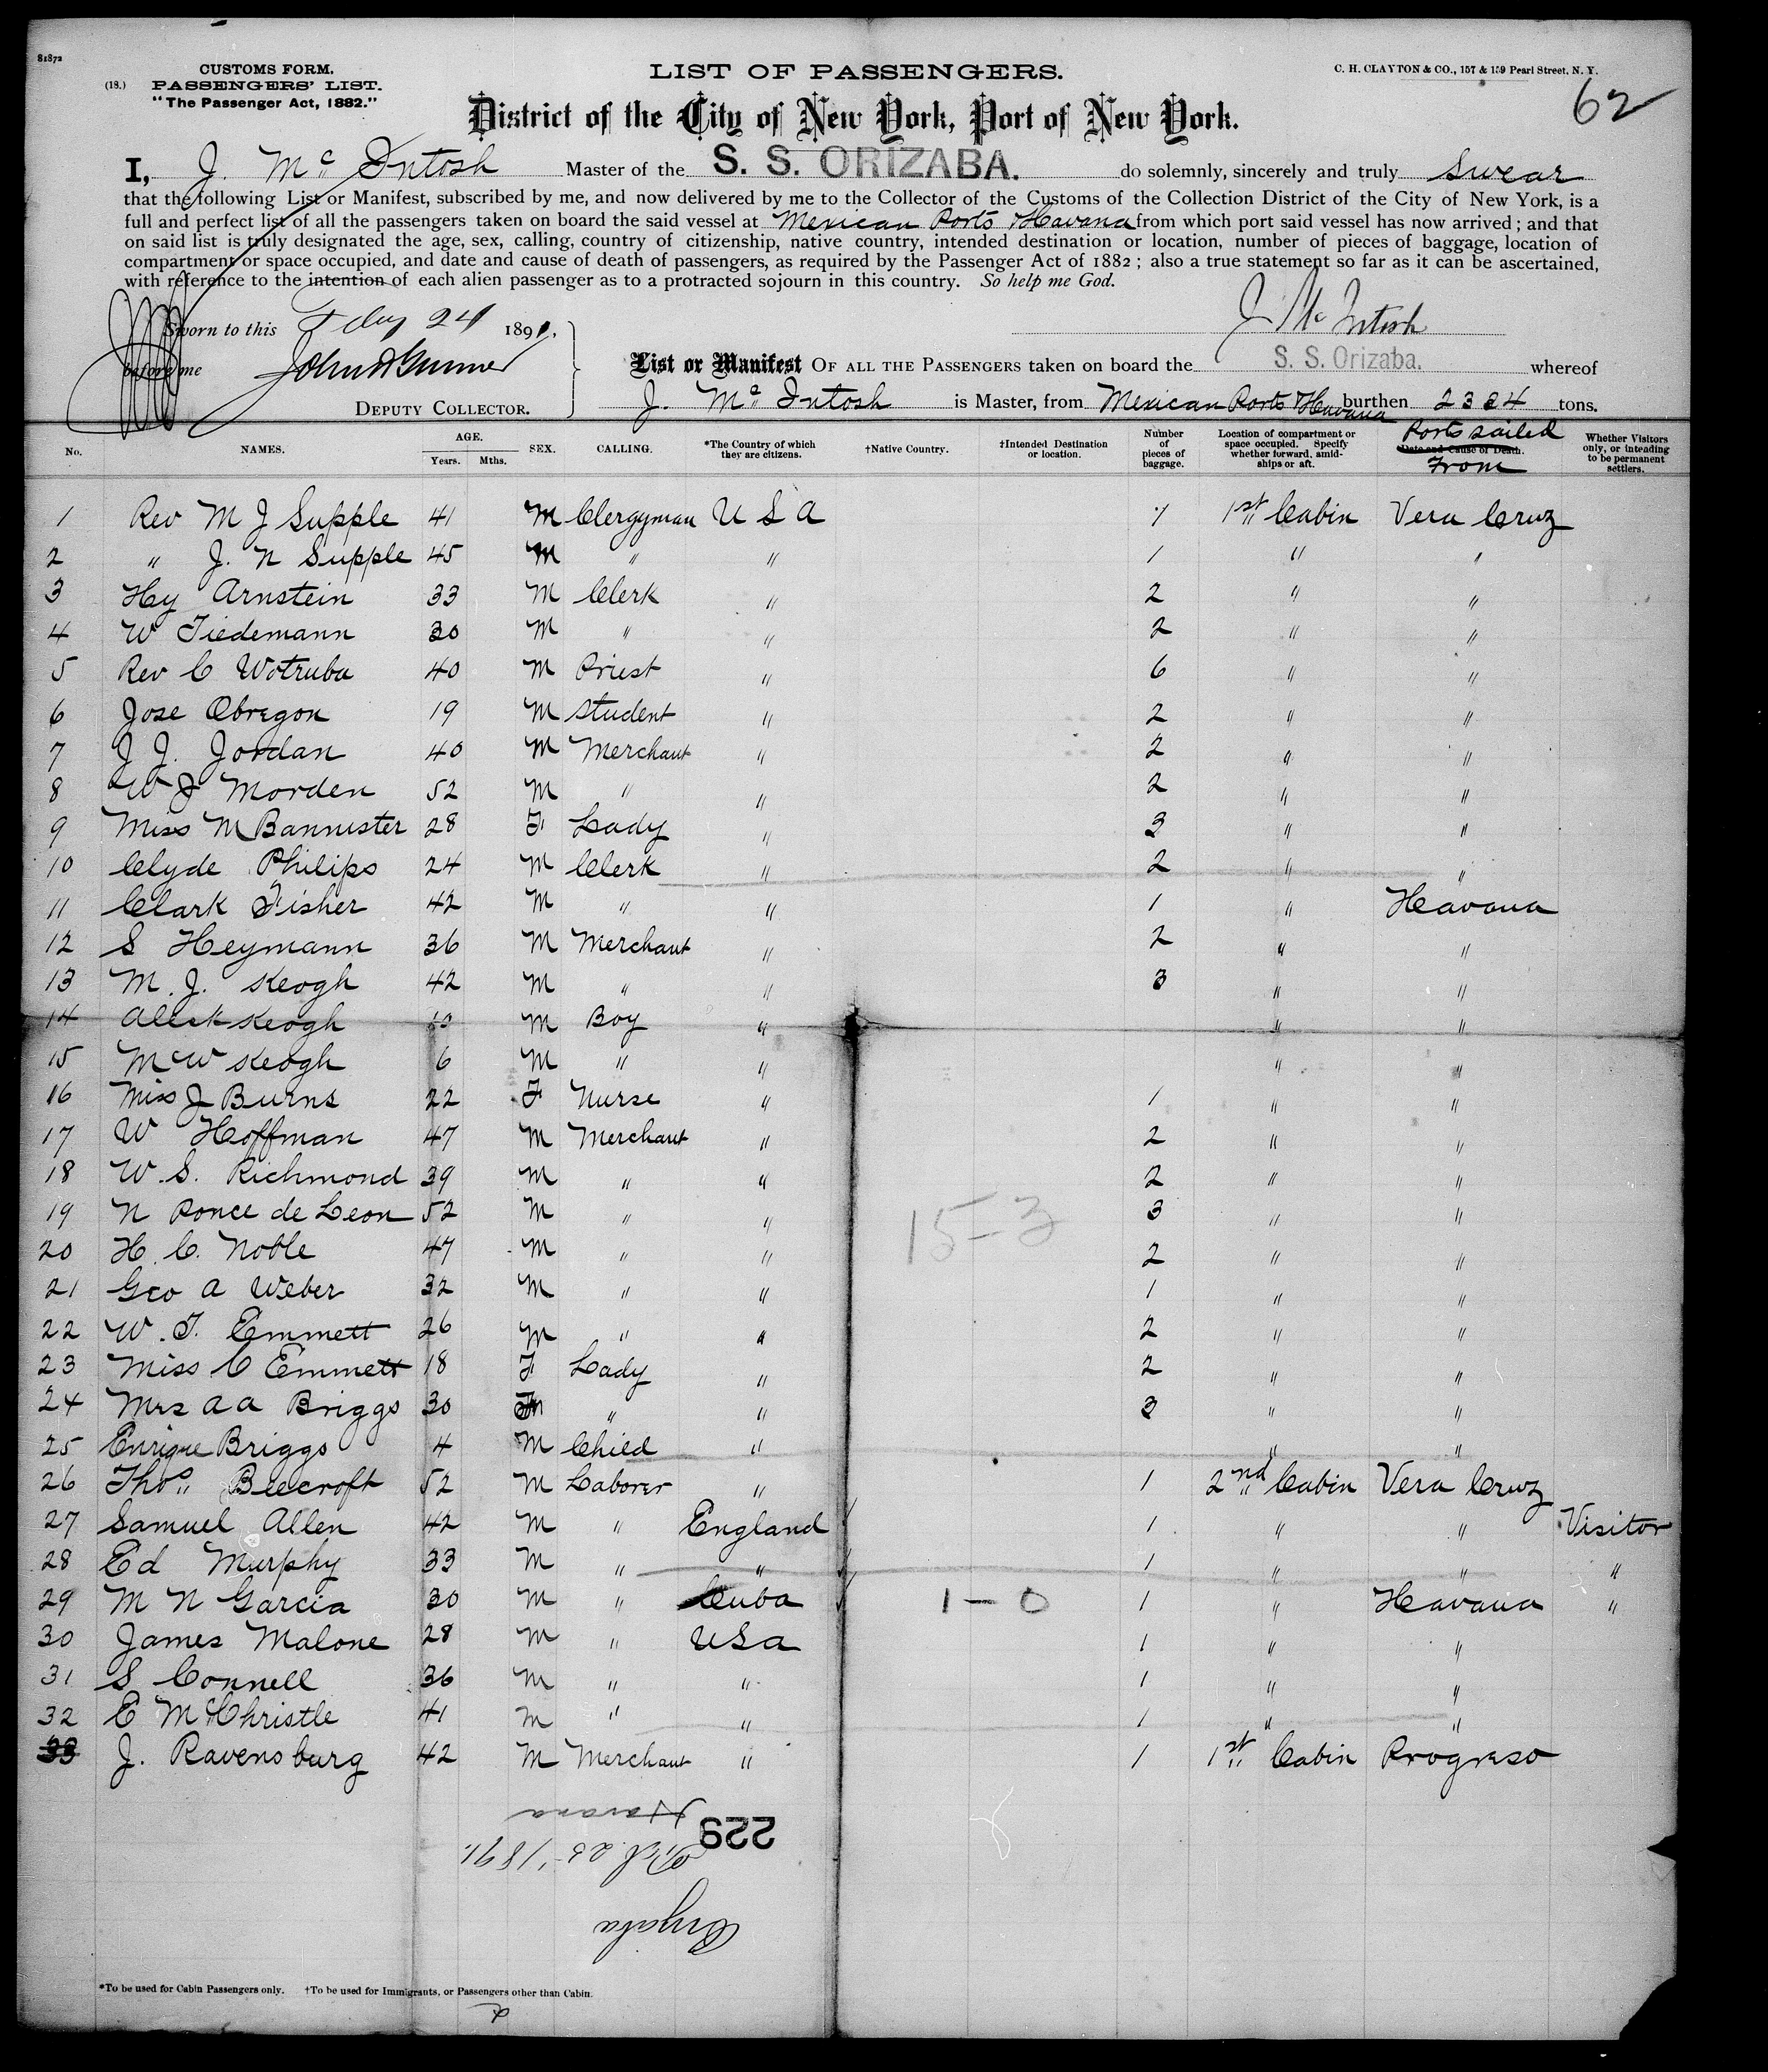 81872
(18.)
CUSTOMS FORM.
PASSENGERS' LIST.
"The Passenger Act, 1882."
LIST OF PASSENGERS.
C. H. CLAYTON & CO., 157 & 159 Pearl Street, N. Y.
62
District of the City of New York, Port of New York.
I, J. Mc Intosh Master of the S. S. ORIZABA. do solemnly, sincerely and truly swear
that the following List or Manifest, subscribed by me, and now delivered by me to the Collector of the Customs of the Collection District of the City of New York, is a
full and perfect list of all the passengers taken on board the said vessel at Mexican Ports & Havana from which port said vessel has now arrived; and that
on said list is truly designated the age, sex, calling, country of citizenship, native country, intended destination or location, number of pieces of baggage, location of
compartment or space occupied, and date and cause of death of passengers, as required by the Passenger Act of 1882; also a true statement so far as it can be ascertained,
with reference to the intention of each alien passenger as to a protracted sojourn in this country. So help me God.
Sworn to this 24 1891.
J Mc Intosh
before me
DEPUTY COLLECTOR.
List or Manifest OF ALL THE PASSENGERS taken on board the S. S. Orizaba. whereof
J. Mc Intosh is Master, from Mexican Ports & Havana burthen 2334 tons.
No. NAMES. AGE. Years. Mths. SEX. CALLING. *The Country of which they are citizens. †Native Country. †Intended Destination or location. Number of pieces of baggage. Location of compartment or space occupied. Specify whether forward, amidships or aft. Date and Cause of Death. Ports sailed From Whether Visitors only, or intending to be permanent settlers.
1 Rev M J Supple 41 M Clergyman U S A 1 1st Cabin Vera Cruz
2 " J. N Supple 45 M " " 1 " "
3 Hy Arnstein 33 M Clerk " 2 " "
4 W Tiedemann 30 M " " 2 " "
5 Rev C Wotruba 40 M Priest " 6 " "
6 Jose Obregon 19 M Student " 2 " "
7 J J. Jordan 40 M Merchant " 2 " "
8 W J Morden 52 M " " 2 " "
9 Miss M Bannister 28 F Lady " 3 " "
10 Clyde Philips 24 M Clerk " 2 " "
11 Clark Fisher 42 M " " 1 " Havana
12 S Heymann 36 M Merchant " 2 " "
13 M. J. Keogh 42 M " " 3 " "
14 Aleck Keogh 10 M Boy " " "
15 M W Keogh 6 M " " " "
16 Miss J Burns 22 F Nurse " 1 " "
17 W Hoffman 47 M Merchant " 2 " "
18 W. S. Richmond 39 M " " 2 " "
19 N Ponce de Leon 52 M " " 15-3 3 " "
20 H. C. Noble 47 M " " 2 " "
21 Geo A Weber 32 M " " 1 " "
22 W. T. Emmett 26 M " " 2 " "
23 Miss C Emmett 18 F Lady " 2 " "
24 Mrs A A Briggs 30 F " " 3 " "
25 Enrique Briggs 4 M Child " " "
26 Thos. Beecroft 52 M Laborer " 1 2nd Cabin Vera Cruz
27 Samuel Allen 42 M " England 1 " " Visitor
28 Ed Murphy 33 M " " 1 " " "
29 M N Garcia 30 M " Cuba 1-0 1 " Havana "
30 James Malone 28 M " USA 1 " "
31 S Connell 36 M " " 1 " "
32 E McChristle 41 M " " 1 " "
33 J. Ravensburg 42 M Merchant " 1 1st Cabin Progreso
Havana
229
Feb. 25 1891.
*To be used for Cabin Passengers only. †To be used for Immigrants, or Passengers other than Cabin.